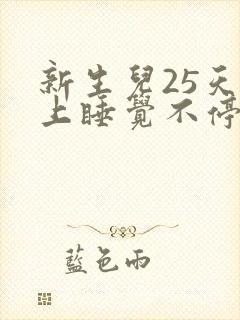 新生兒25天
上睡覺不停
藍色雨